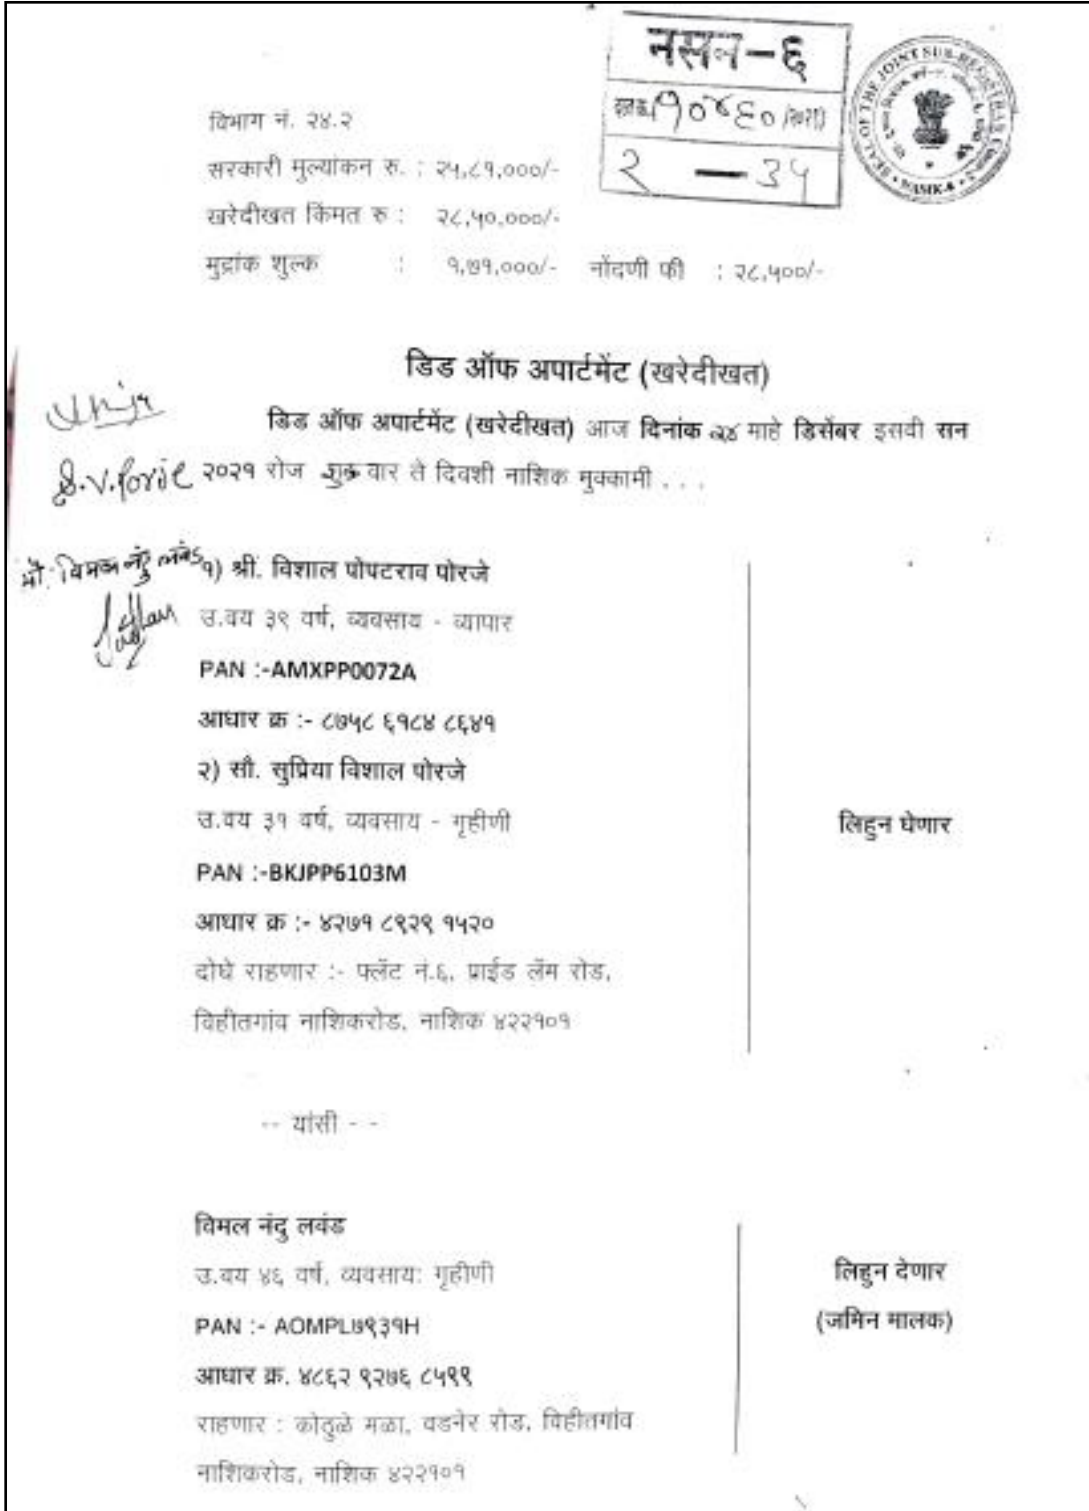 नसन-६
दस्त क्र.१०४६०/२०२१
२ — ३५
SEAL OF THE JOINT SUB-REGISTRAR
NASIK-6
विभाग नं. २४.२
सरकारी मुल्यांकन रु. : २५,८१,०००/-
खरेदीखत किंमत रु : २८,५०,०००/-
मुद्रांक शुल्क : १,७१,०००/- नोंदणी फी : २८,५००/-
डिड ऑफ अपार्टमेंट (खरेदीखत)
डिड ऑफ अपार्टमेंट (खरेदीखत) आज दिनांक २४ माहे डिसेंबर इसवी सन
२०२१ रोज शुक्रवार ते दिवशी नाशिक मुक्कामी . . .
S.V.Porje
सौ. विमल नंदु लवंड
१) श्री. विशाल पोपटराव पोरजे
उ.वय ३९ वर्ष, व्यवसाय - व्यापार
PAN :-AMXPP0072A
आधार क्र :- ८७५८ ६१८४ ८६४१
२) सौ. सुप्रिया विशाल पोरजे
उ.वय ३१ वर्ष, व्यवसाय - गृहीणी
लिहुन घेणार
PAN :-BKJPP6103M
आधार क्र :- ४२७१ ८९२९ १५२०
दोघे राहणार :- फ्लॅट नं.६, प्राईड लॅम रोड,
विहीतगांव नाशिकरोड, नाशिक ४२२१०१
-- यांसी - -
विमल नंदु लवंड
उ.वय ४६ वर्ष, व्यवसाय: गृहीणी
लिहुन देणार
PAN :- AOMPL७९३१H
(जमिन मालक)
आधार क्र. ४८६२ ९२७६ ८५९९
राहणार : कोठुळे मळा, वडनेर रोड, विहीतगांव
नाशिकरोड, नाशिक ४२२१०१